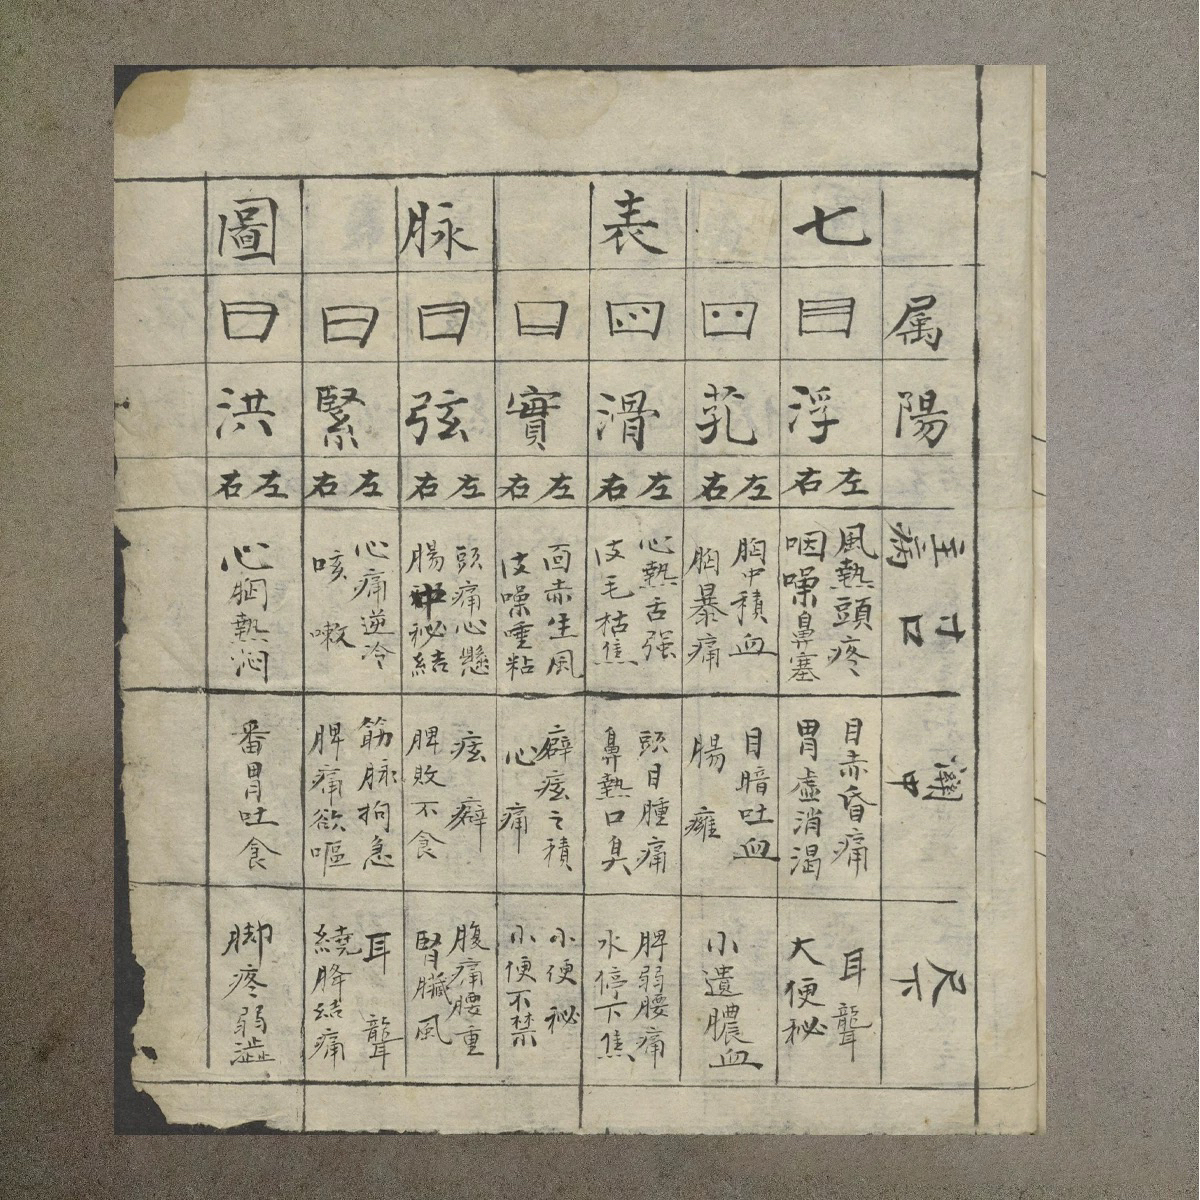 七表脉圖
属陽
主病
寸口
関中
尺下
浮
左
右
風熱頭疼
咽噪鼻塞
目赤昏痛
胃虚消渴
耳聾
大便秘
芤
左
右
胸中積血
胸暴痛
目暗吐血
腸癰
小遺膿血
滑
左
右
心熱舌强
皮毛枯焦
頭目腫痛
鼻熱口臭
脾弱腰痛
水停下焦
實
左
右
面赤生風
皮噪唾粘
癖痃之積
心痛
小便秘
小便不禁
弦
左
右
頭痛心懸
腸中秘結
痃癖
脾敗不食
腹痛腰重
腎臟風
緊
左
右
心痛逆冷
咳嗽
筋脉拘急
脾痛欲嘔
耳聾
繞臍結痛
洪
左
右
心胸熱闷
番胃吐食
脚疼弱澁